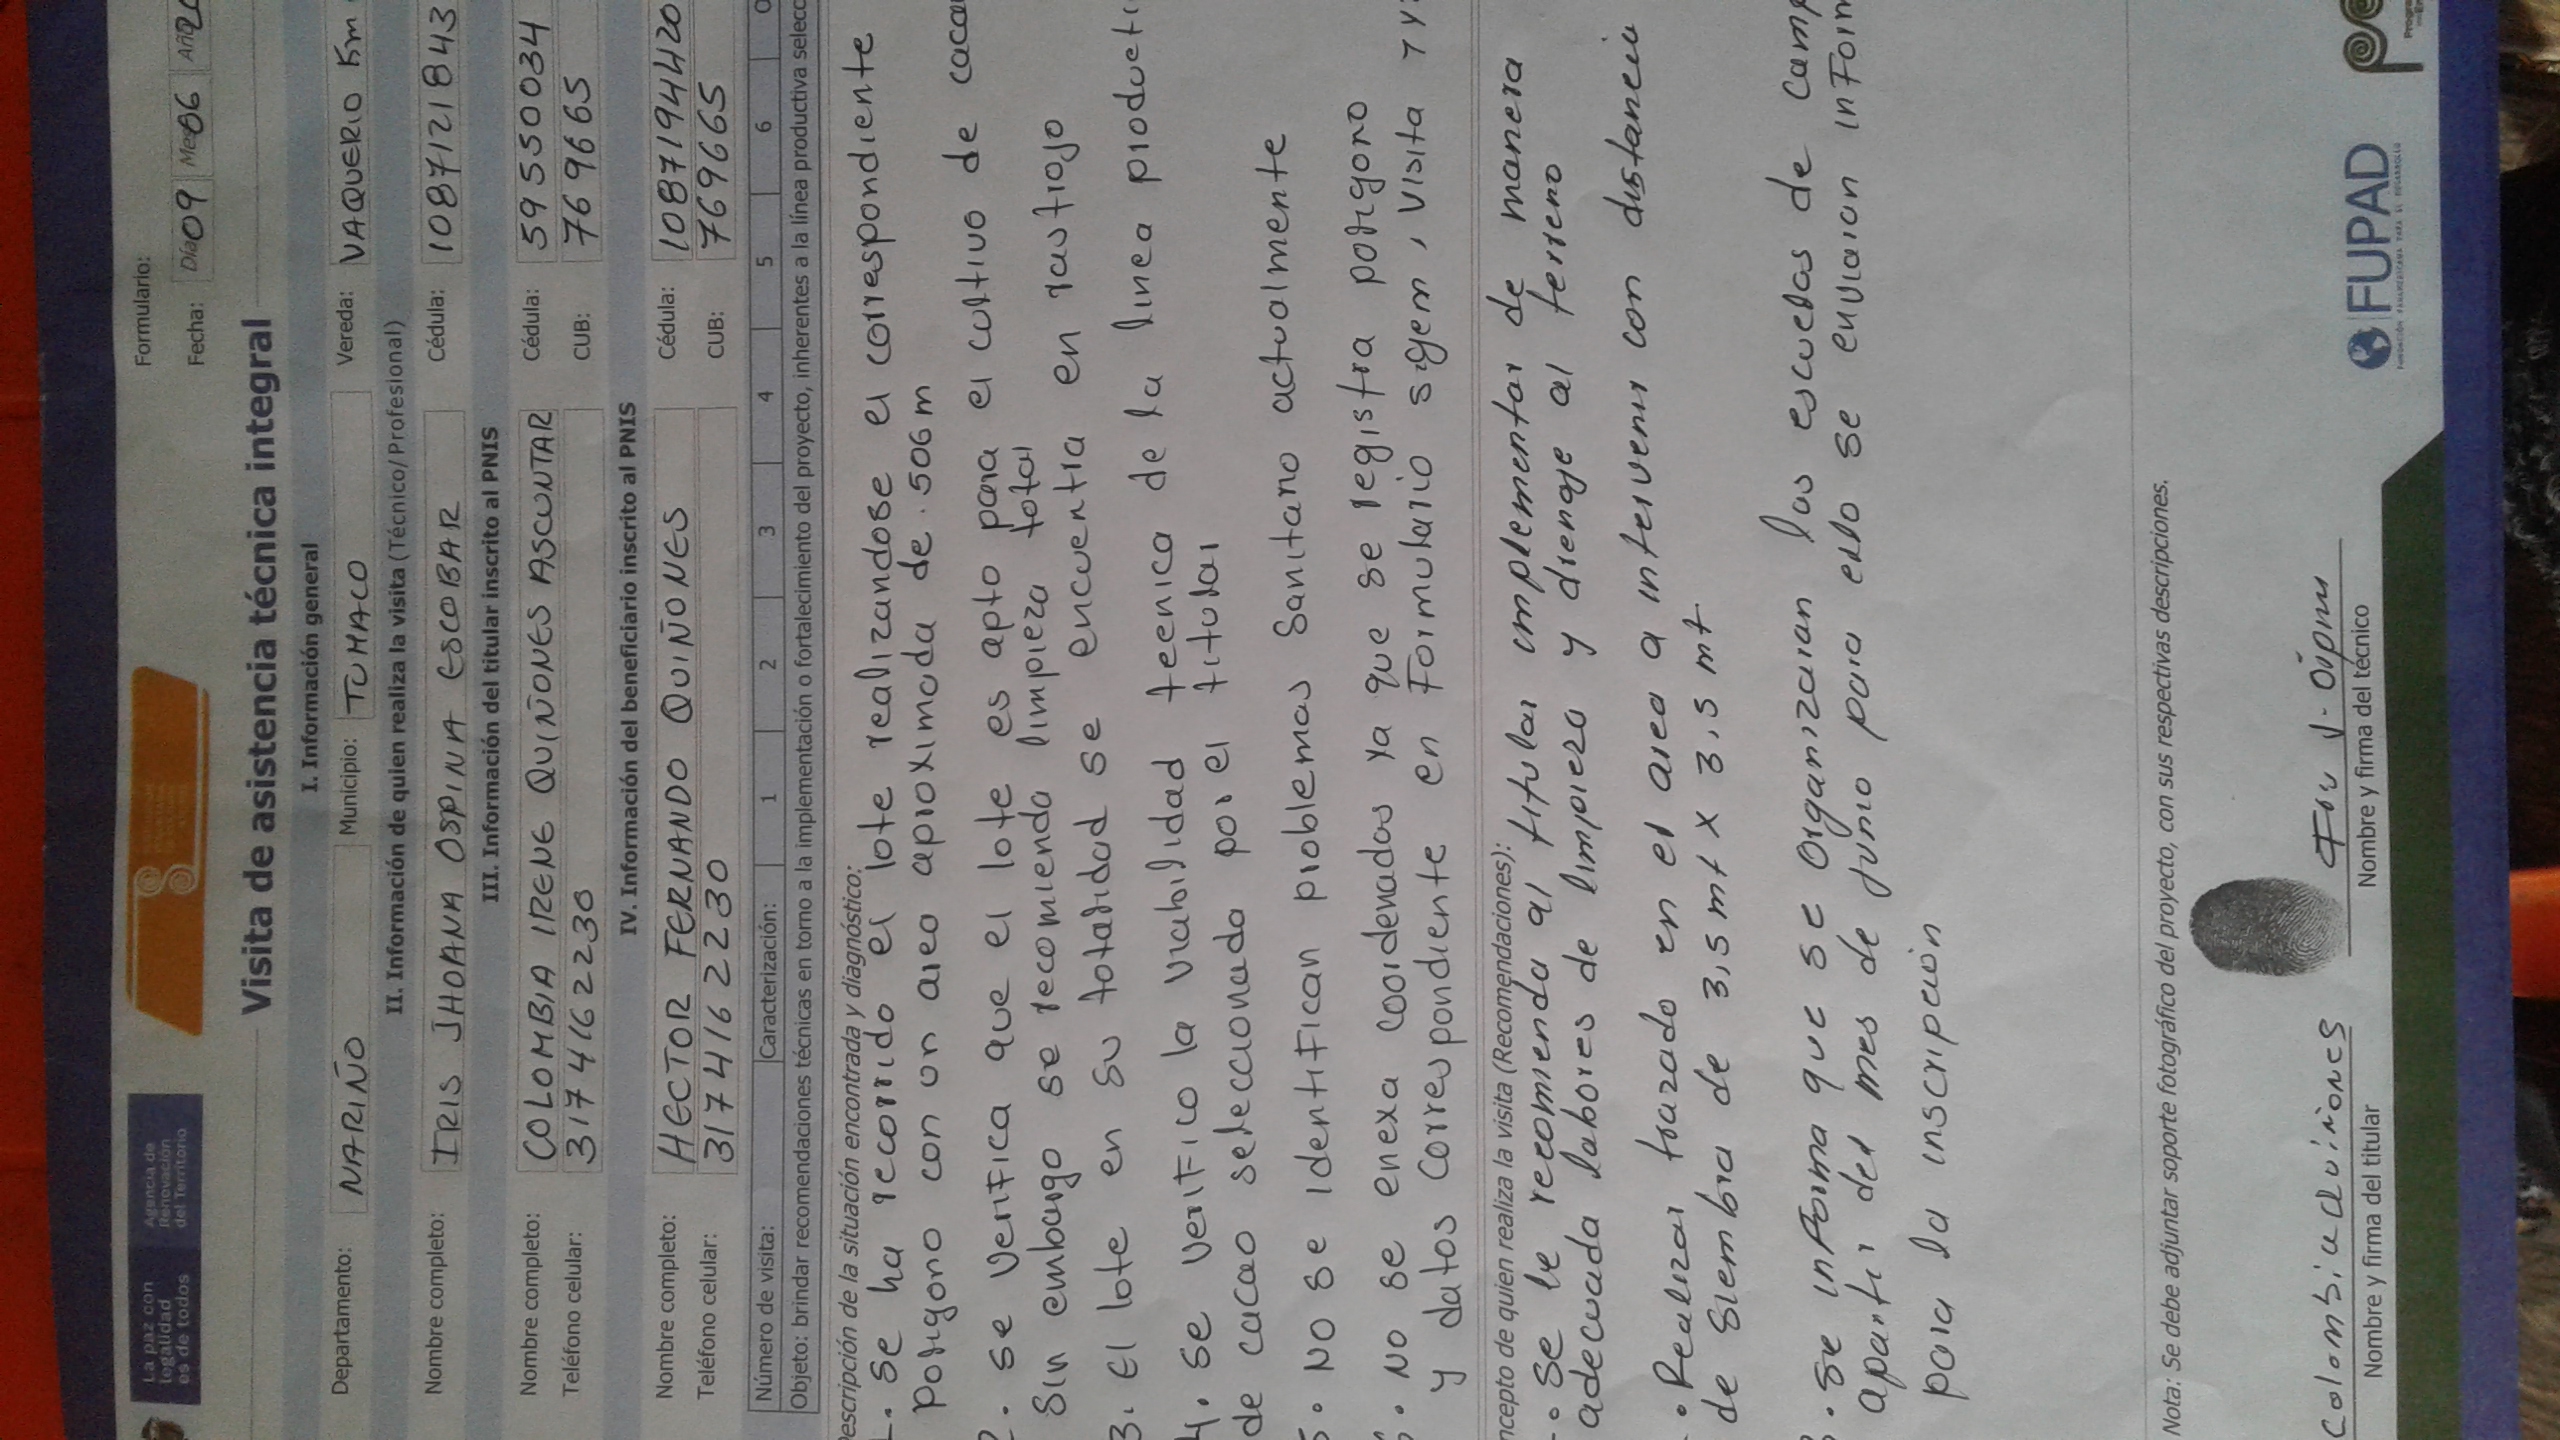 La paz con
legalidad
es de todos
Agencia de
Renovación
del Territorio
Formulario:
Fecha: Día 09 Mes 06 Año 20
Visita de asistencia técnica integral
I. Información general
Departamento: NARIÑO Municipio: TUMACO Vereda: VAQUERIO Km
II. Información de quien realiza la visita (Técnico/Profesional)
Nombre completo: IRIS JHOANA OSPINA ESCOBAR Cédula: 1087121843
III. Información del titular inscrito al PNIS
Nombre completo: COLOMBIA IRENE QUIÑONES ASCUNTAR Cédula: 59550034
Teléfono celular: 3174162230 CUB: 769665
IV. Información del beneficiario inscrito al PNIS
Nombre completo: HECTOR FERNANDO QUIÑONES Cédula: 1087194420
Teléfono celular: 3174162230 CUB: 769665
Número de visita: Caracterización: 1 2 3 4 5 6
Objeto: brindar recomendaciones técnicas en torno a la implementación o fortalecimiento del proyecto, inherentes a la línea productiva selecc
escripción de la situación encontrada y diagnóstico:
1. Se ha recorrido el lote realizandose el correspondiente
poligono con un area aproximada de. 506m
2. se verifica que el lote es apto para el cultivo de cacao
Sin embargo se recomienda limpieza total
3. El lote en su totalidad se encuentra en rastrojo
4. se verifico la viabilidad tecnica de la linea producti
de cacao seleccionada por el titular
5. No se identifican problemas Sanitario actualmente
6. No se enexa coordenadas ya que se registra poligono
y datos correspondiente en Formulario sygem, visita 1 y
ncepto de quien realiza la visita (Recomendaciones):
- Se le recomienda al titular implementar de manera
adecuada labores de limpieza y drenaje al terreno
. Realizar trazado en el area a intervenir con distancia
de Siembra de 3,5 mt x 3,5 mt
. Se informa que se organizaran las escuelas de camp
apartir del mes de junio para ello se enviaran inform
para la inscripción
Nota: Se debe adjuntar soporte fotográfico del proyecto, con sus respectivas descripciones.
Colombia Quiñones
Nombre y firma del titular
Nombre y firma del técnico
FUPAD
FUNDACIÓN PANAMERICANA PARA EL DESARROLLO